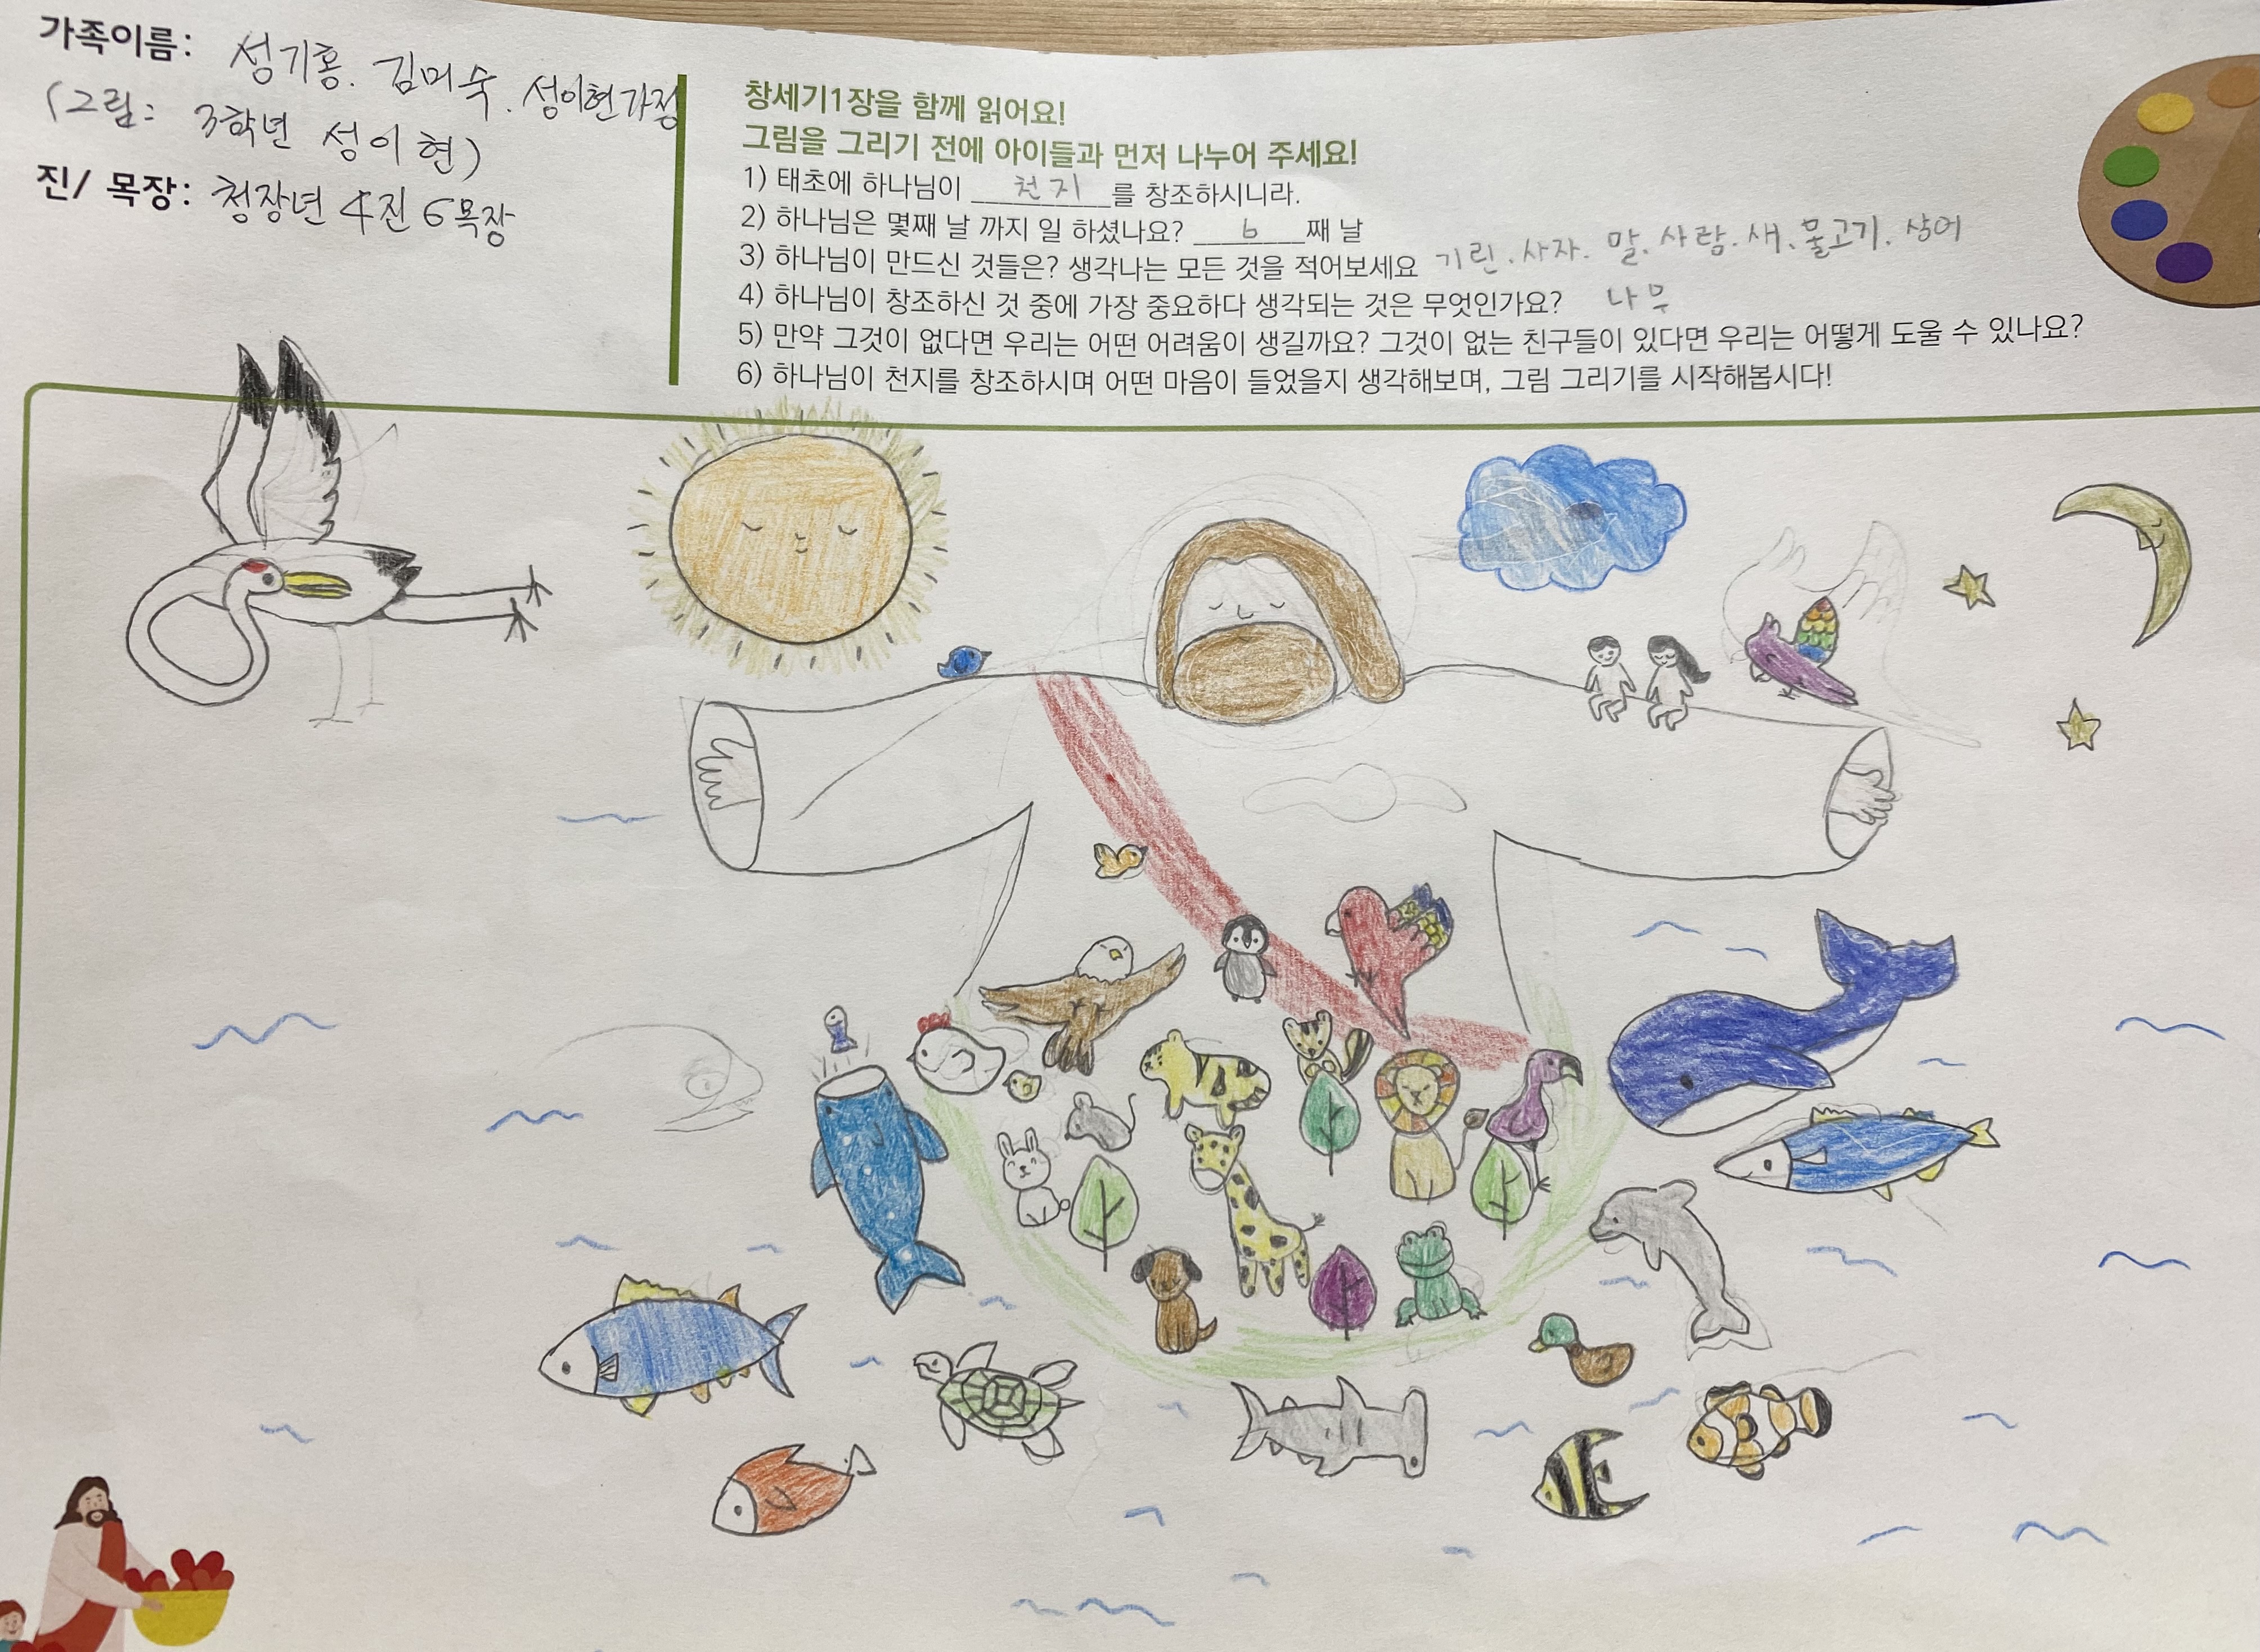 가족이름: 성기홍. 김미숙. 성이현가정
(그림: 3학년 성이현)
진/ 목장: 청장년 4진 6목장
창세기1장을 함께 읽어요!
그림을 그리기 전에 아이들과 먼저 나누어 주세요!
1) 태초에 하나님이 천지를 창조하시니라.
2) 하나님은 몇째 날 까지 일 하셨나요? 6째 날
3) 하나님이 만드신 것들은? 생각나는 모든 것을 적어보세요 기린. 사자. 말. 사람. 새. 물고기. 상어
4) 하나님이 창조하신 것 중에 가장 중요하다 생각되는 것은 무엇인가요? 나무
5) 만약 그것이 없다면 우리는 어떤 어려움이 생길까요? 그것이 없는 친구들이 있다면 우리는 어떻게 도울 수 있나요?
6) 하나님이 천지를 창조하시며 어떤 마음이 들었을지 생각해보며, 그림 그리기를 시작해봅시다!